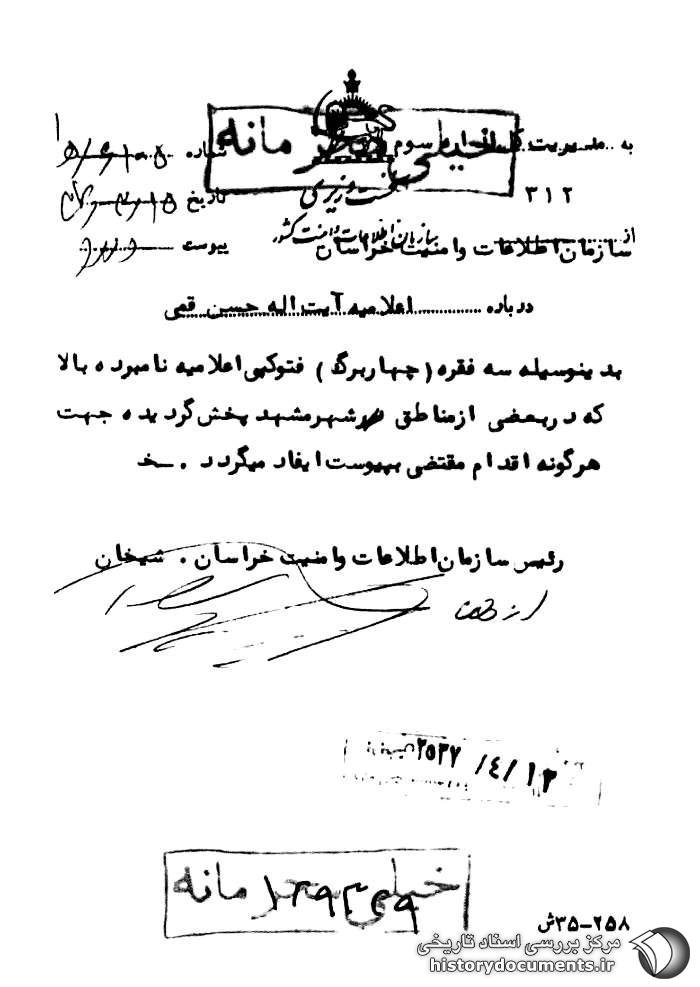 خیلی محرمانه
به مدیریت کل اداره سوم
شماره
۳۱۲
نخست وزیری
تاریخ
از سازمان اطلاعات و امنیت خراسان
سازمان اطلاعات و امنیت کشور
پیوست دارد
درباره اعلامیه آیت اله حسن قمی
بدینوسیله سه فقره (چهاربرگ) فتوکپی اعلامیه نامبرده بالا
که در بعضی از مناطق شهر مشهد پخش گردیده جهت
هرگونه اقدام مقتضی بپیوست ایفاد میگردد . خ
رئیس سازمان اطلاعات و امنیت خراسان . شیخان
از طرف
۲۵۳۷ /٤/ ۱۲
خیلی محرمانه
۳۵-۲۵۸ش
مرکز بررسی اسناد تاریخی
historydocuments.ir